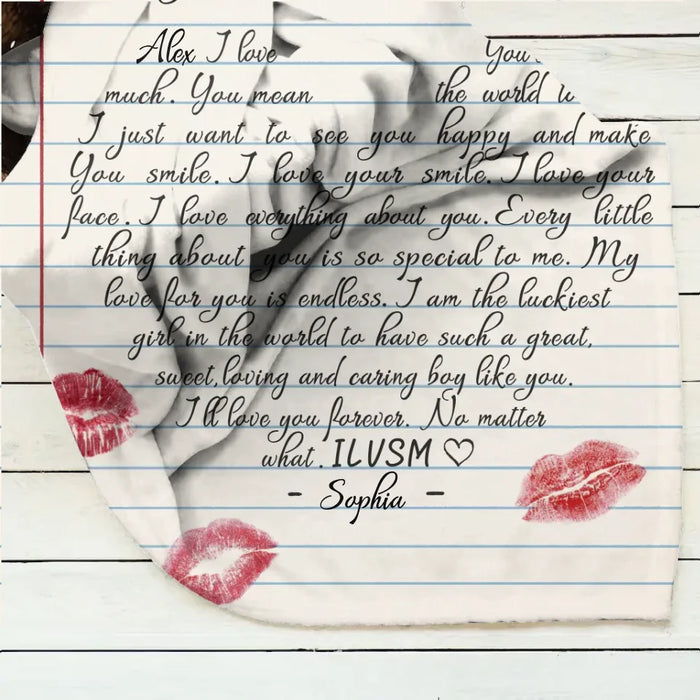 Alex I love You
much. You mean the world
I just want to see you happy and make
You smile. I love your smile. I love your
face. I love everything about you. Every little
thing about you is so special to me. My
love for you is endless. I am the luckiest
girl in the world to have such a great,
sweet, loving and caring boy like you.
I'll love you forever. No matter
what. ILVSM ♡
- Sophia -